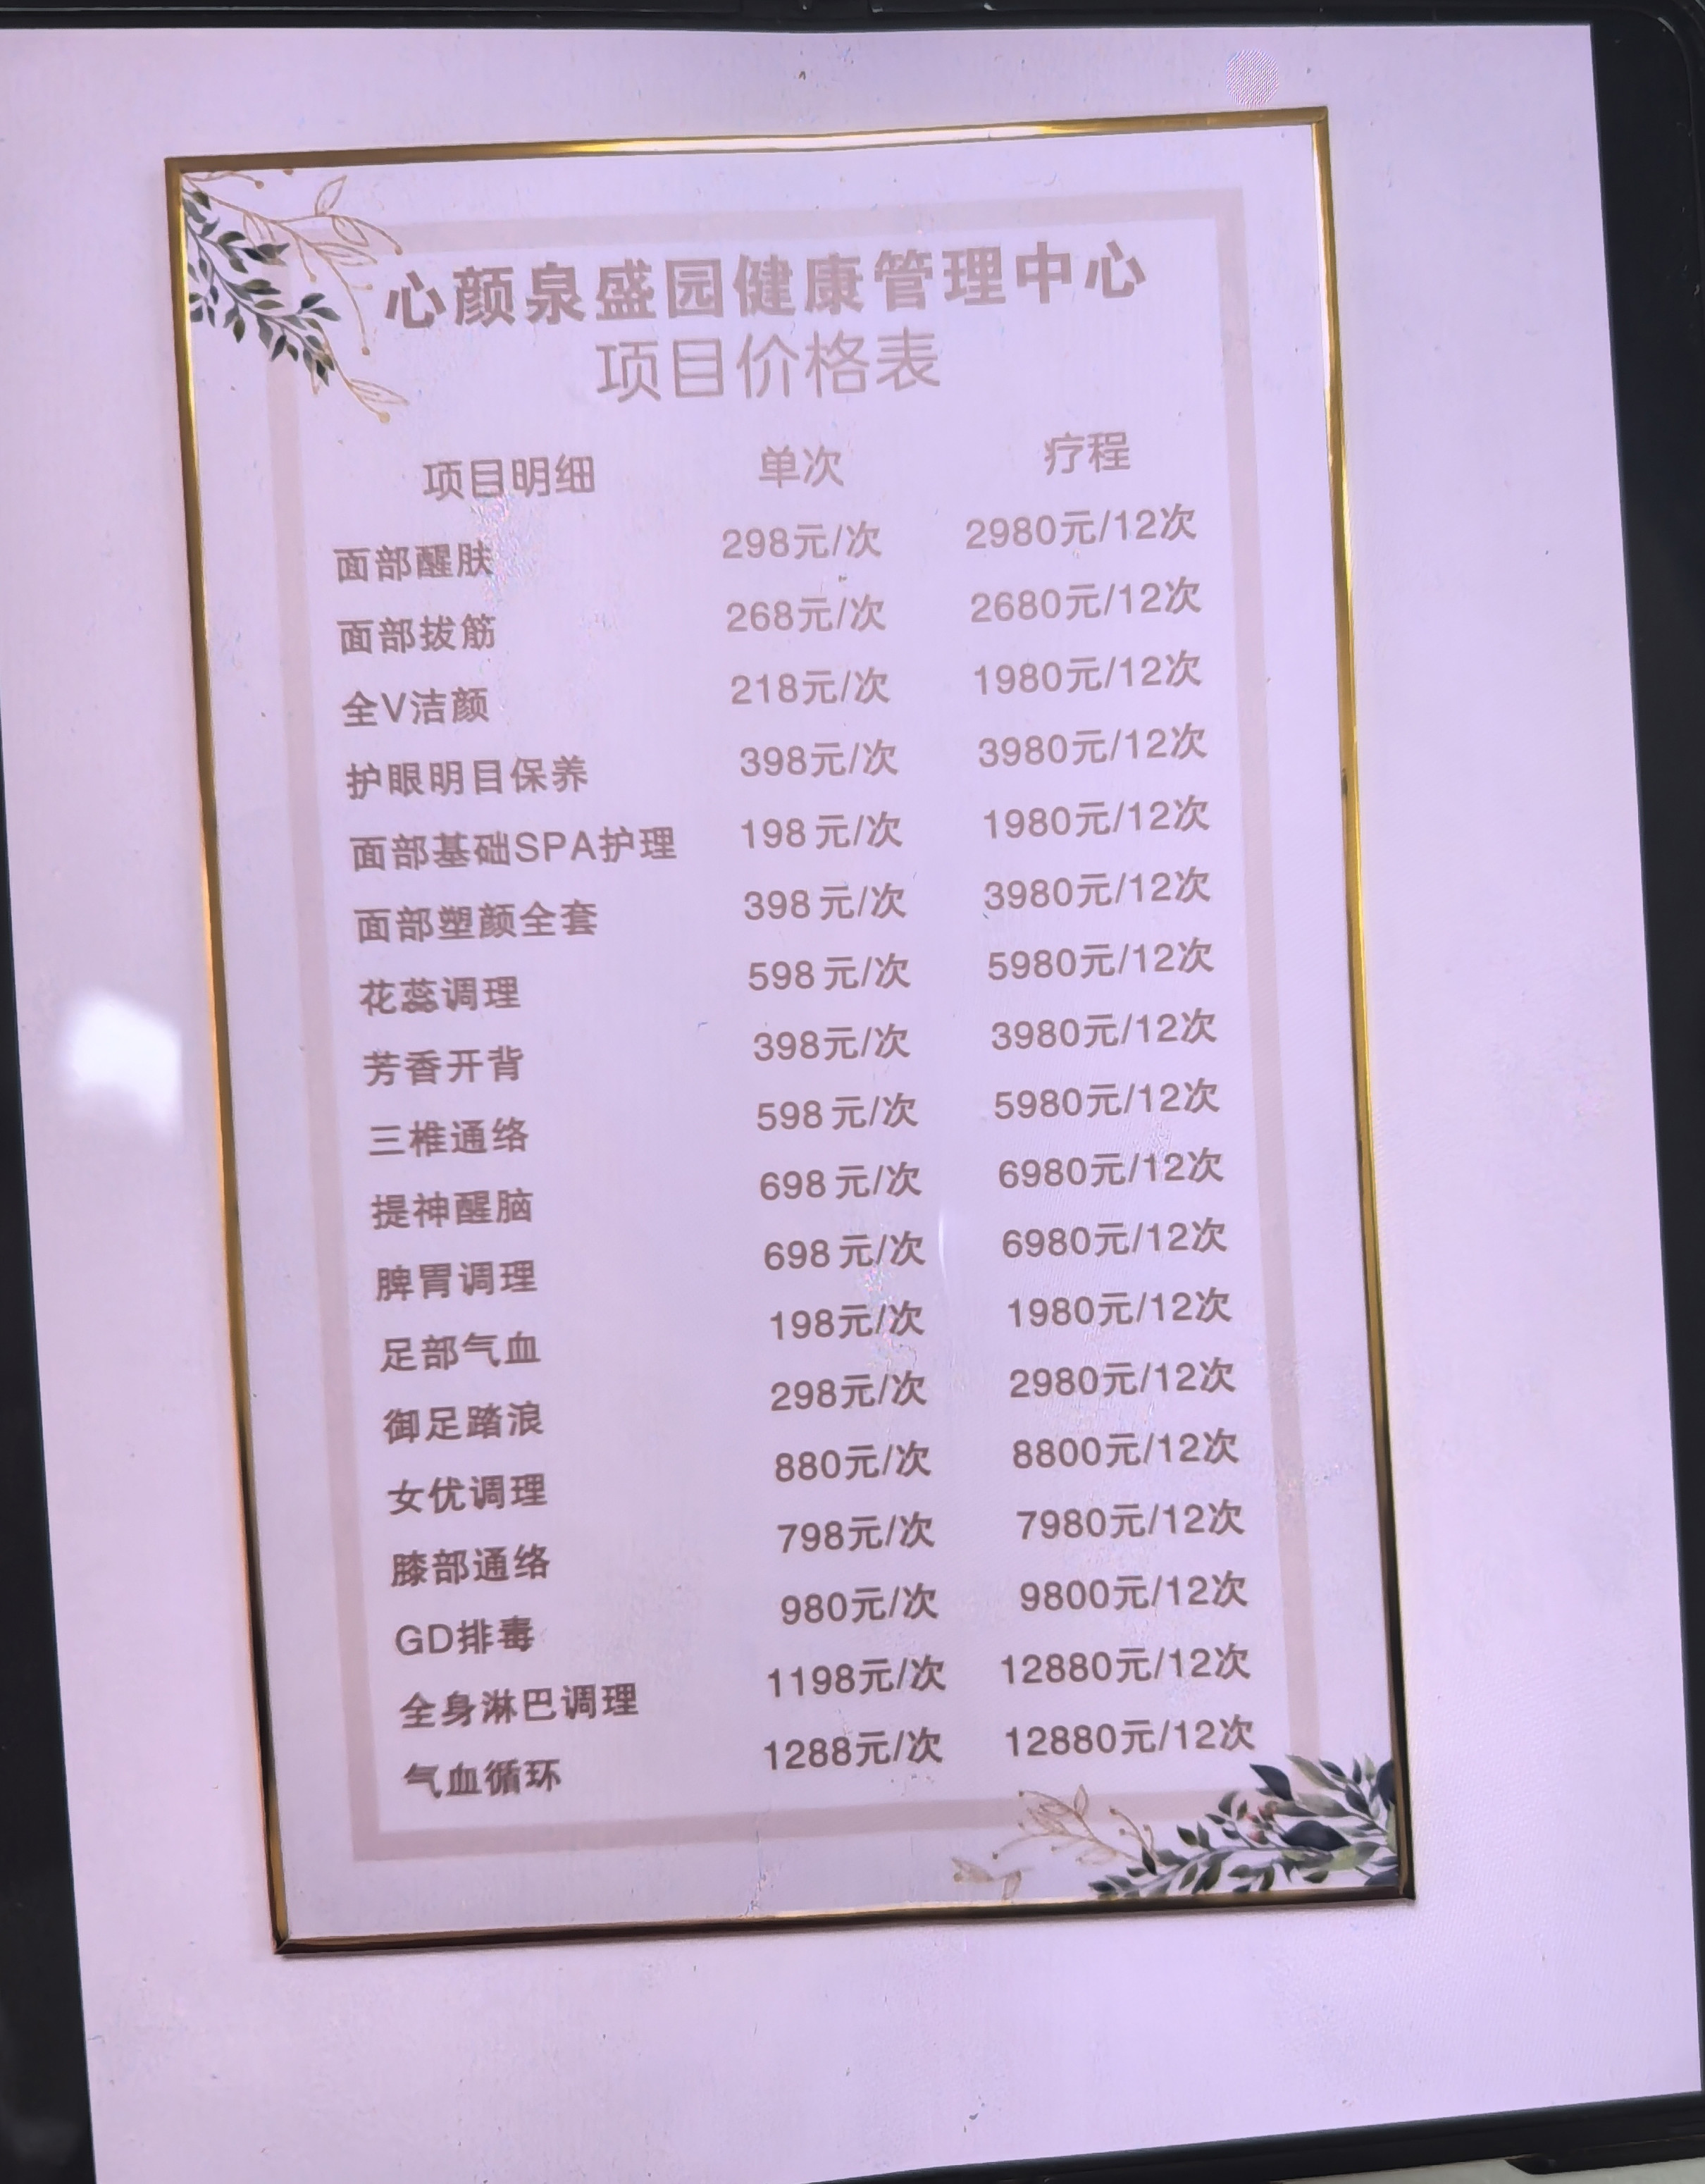 心颜泉盛园健康管理中心
项目价格表
项目明细 单次 疗程
面部醒肤 298元/次 2980元/12次
面部拔筋 268元/次 2680元/12次
全V洁颜 218元/次 1980元/12次
护眼明目保养 398元/次 3980元/12次
面部基础SPA护理 198元/次 1980元/12次
面部塑颜全套 398元/次 3980元/12次
花蕊调理 598元/次 5980元/12次
芳香开背 398元/次 3980元/12次
三椎通络 598元/次 5980元/12次
提神醒脑 698元/次 6980元/12次
脾胃调理 698元/次 6980元/12次
足部气血 198元/次 1980元/12次
御足踏浪 298元/次 2980元/12次
女优调理 880元/次 8800元/12次
膝部通络 798元/次 7980元/12次
GD排毒 980元/次 9800元/12次
全身淋巴调理 1198元/次 12880元/12次
气血循环 1288元/次 12880元/12次